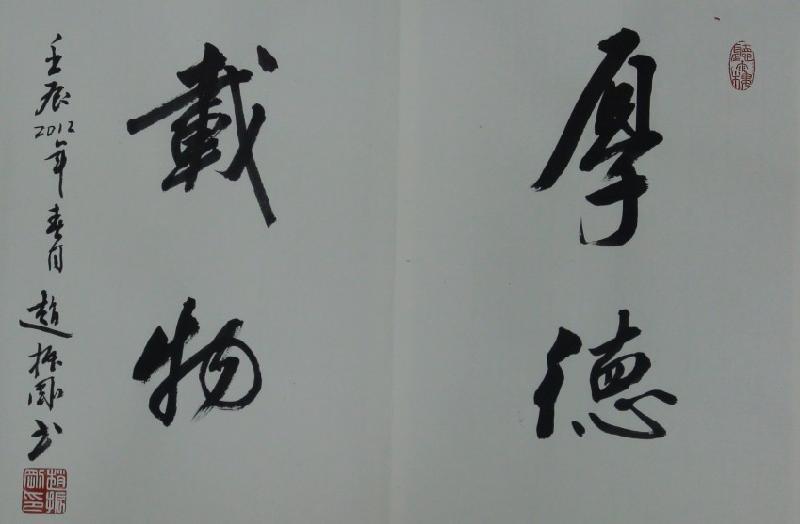 厚德
載物
壬辰2012年春月趙振剛书